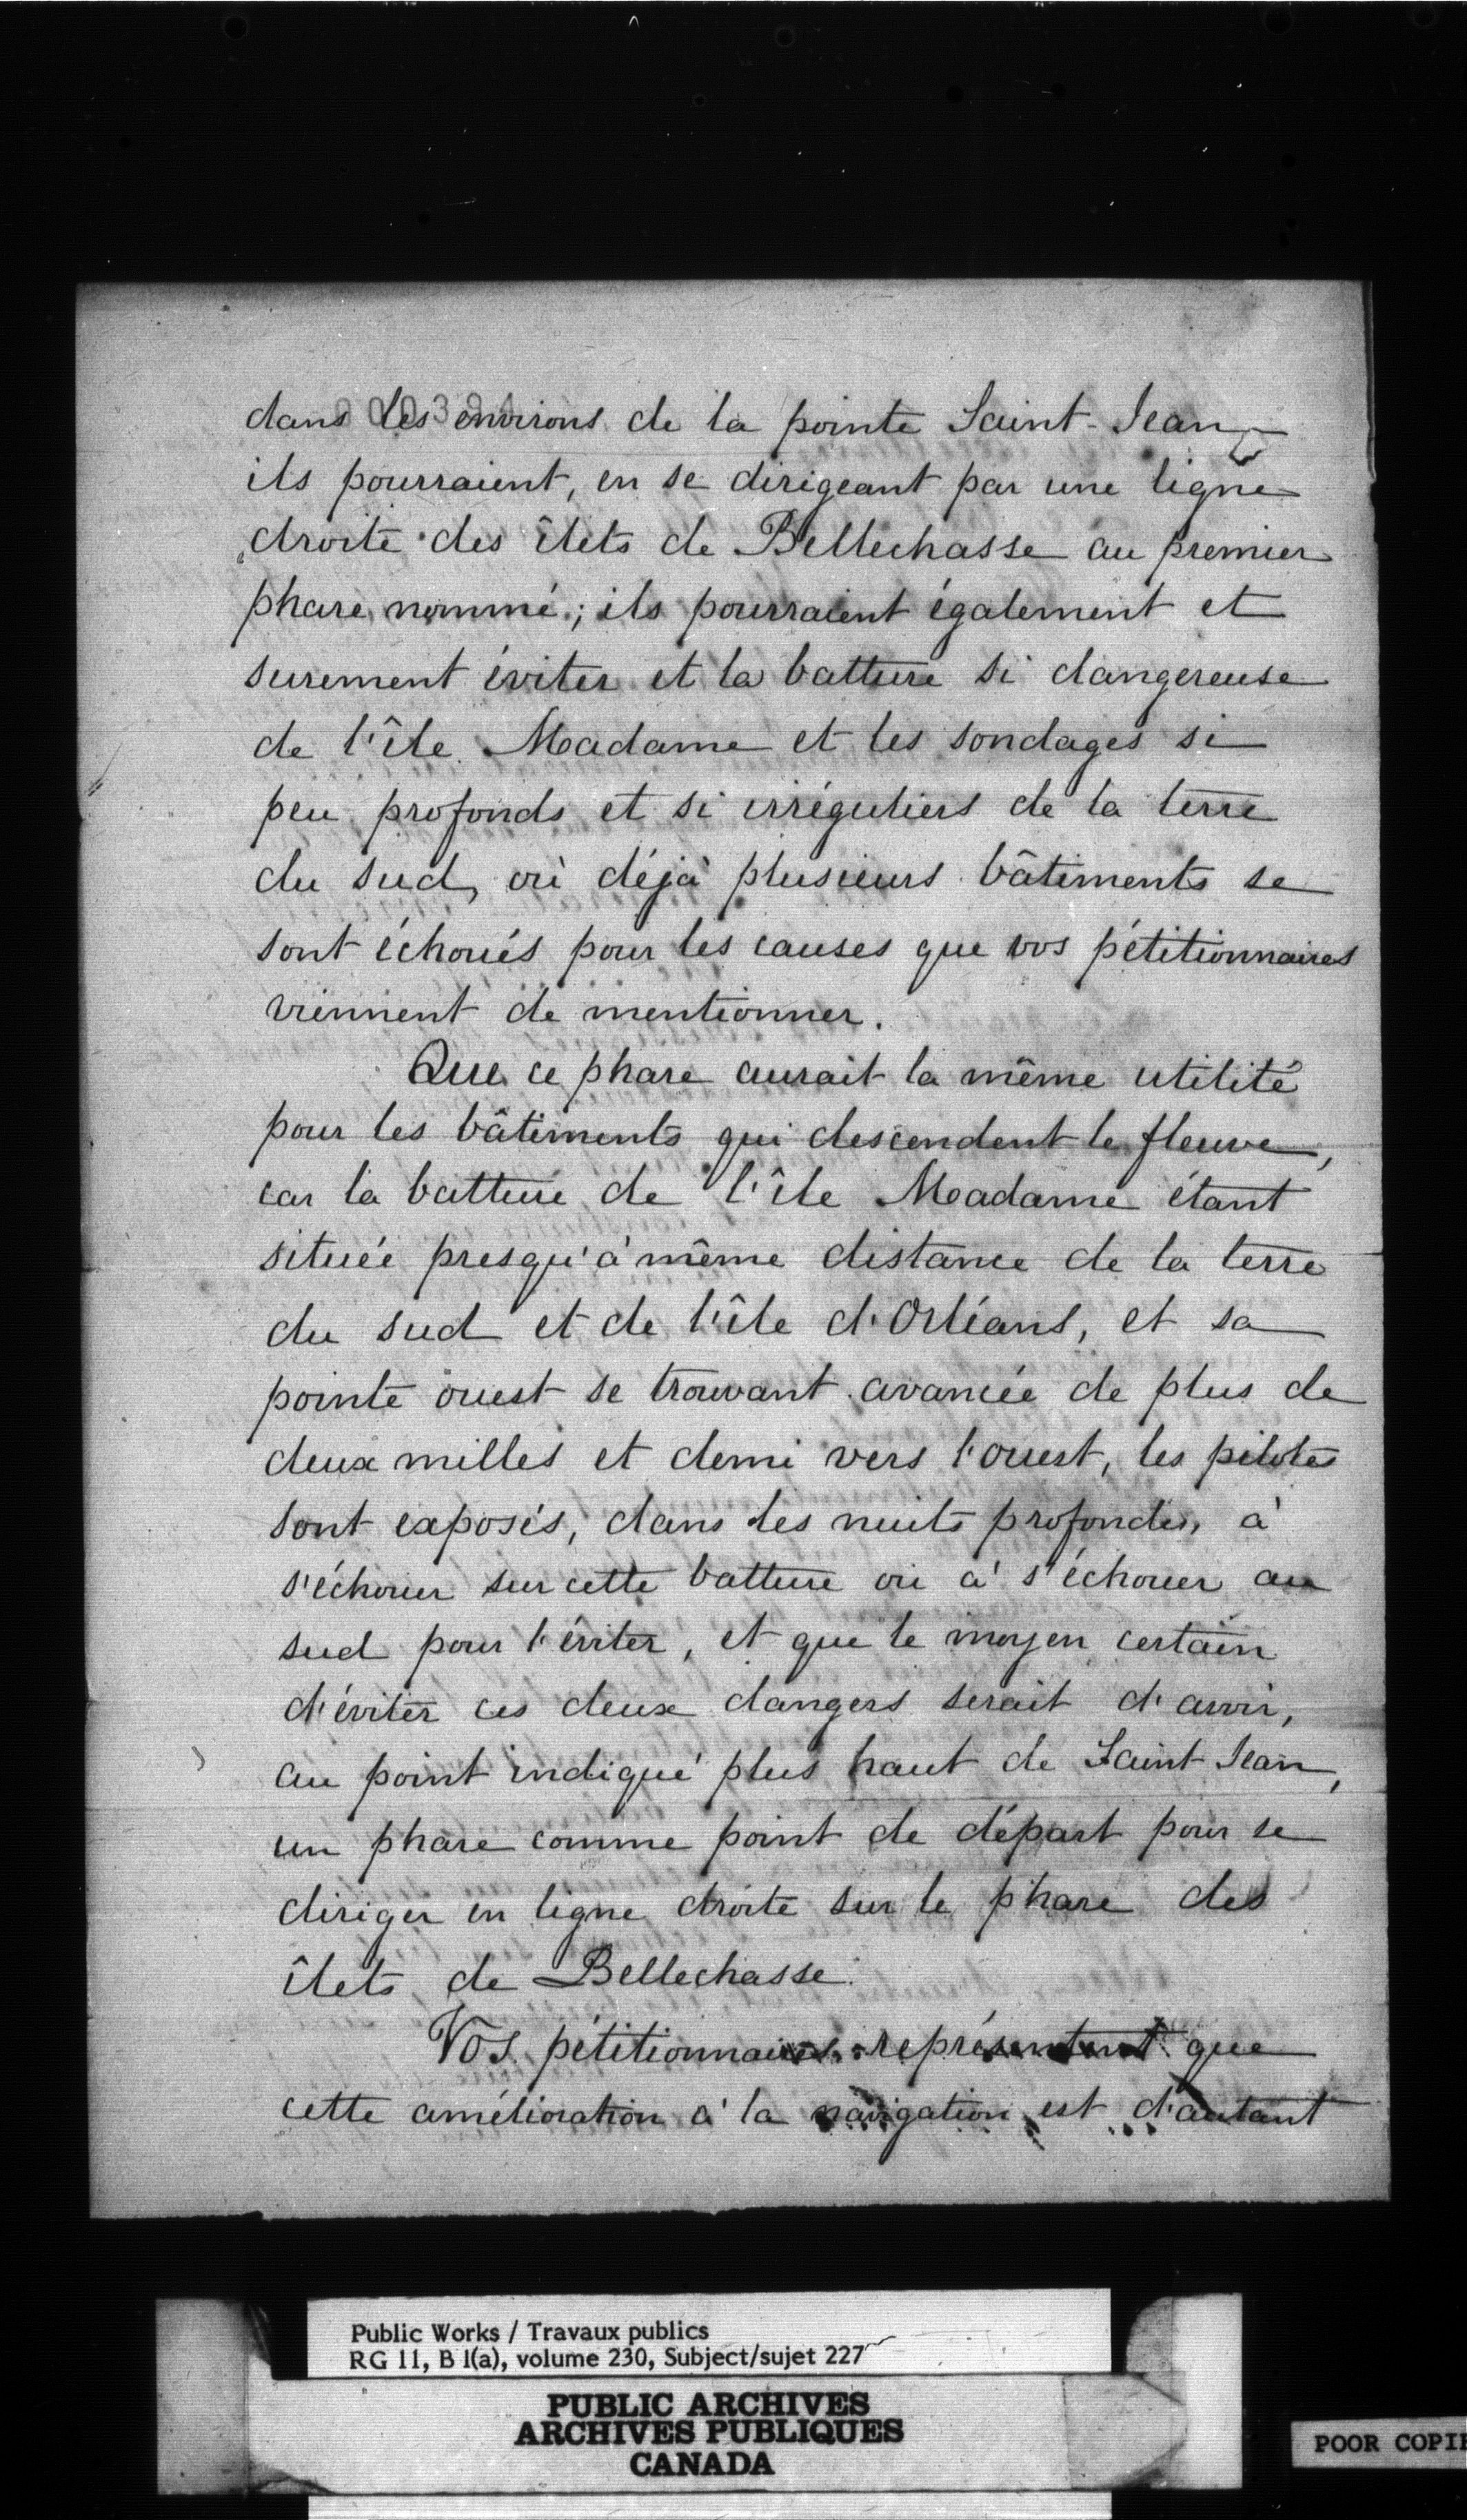 dans les environs de la pointe Saint-Jean,
ils pourraient, en se dirigeant par une ligne
droite des îlets de Bellechasse au premier
phare nommé; ils pourraient également et
surement éviter et la batture si dangereuse
de l'île Madame et les sondages si
peu profonds et si irréguliers de la terre
du sud, où déjà plusieurs bâtiments se
sont échoués pour les causes que vos pétitionnaires
viennent de mentionner.
Que ce phare aurait la même utilité
pour les bâtiments qui descendent le fleuve,
car la batture de l'île Madame étant
située presqu'à même distance de la terre
du sud et de l'île d'Orléans, et sa
pointe ouest se trouvant avancée de plus de
deux milles et demi vers l'ouest, les pilotes
sont exposés, dans les nuits profondes, à
s'échouer sur cette batture ou à s'échouer au
sud pour l'éviter, et que le moyen certain
d'éviter ces deux dangers serait d'avoir,
au point indiqué plus haut de Saint Jean,
un phare comme point de départ pour se
diriger en ligne droite sur le phare des
îlets de Bellechasse.
Vos pétitionnaires représentent que
cette amélioration à la navigation est d'autant
Public Works / Travaux publics
RG 11, B 1(a), volume 230, Subject/sujet 227
PUBLIC ARCHIVES
ARCHIVES PUBLIQUES
CANADA
POOR COPIE